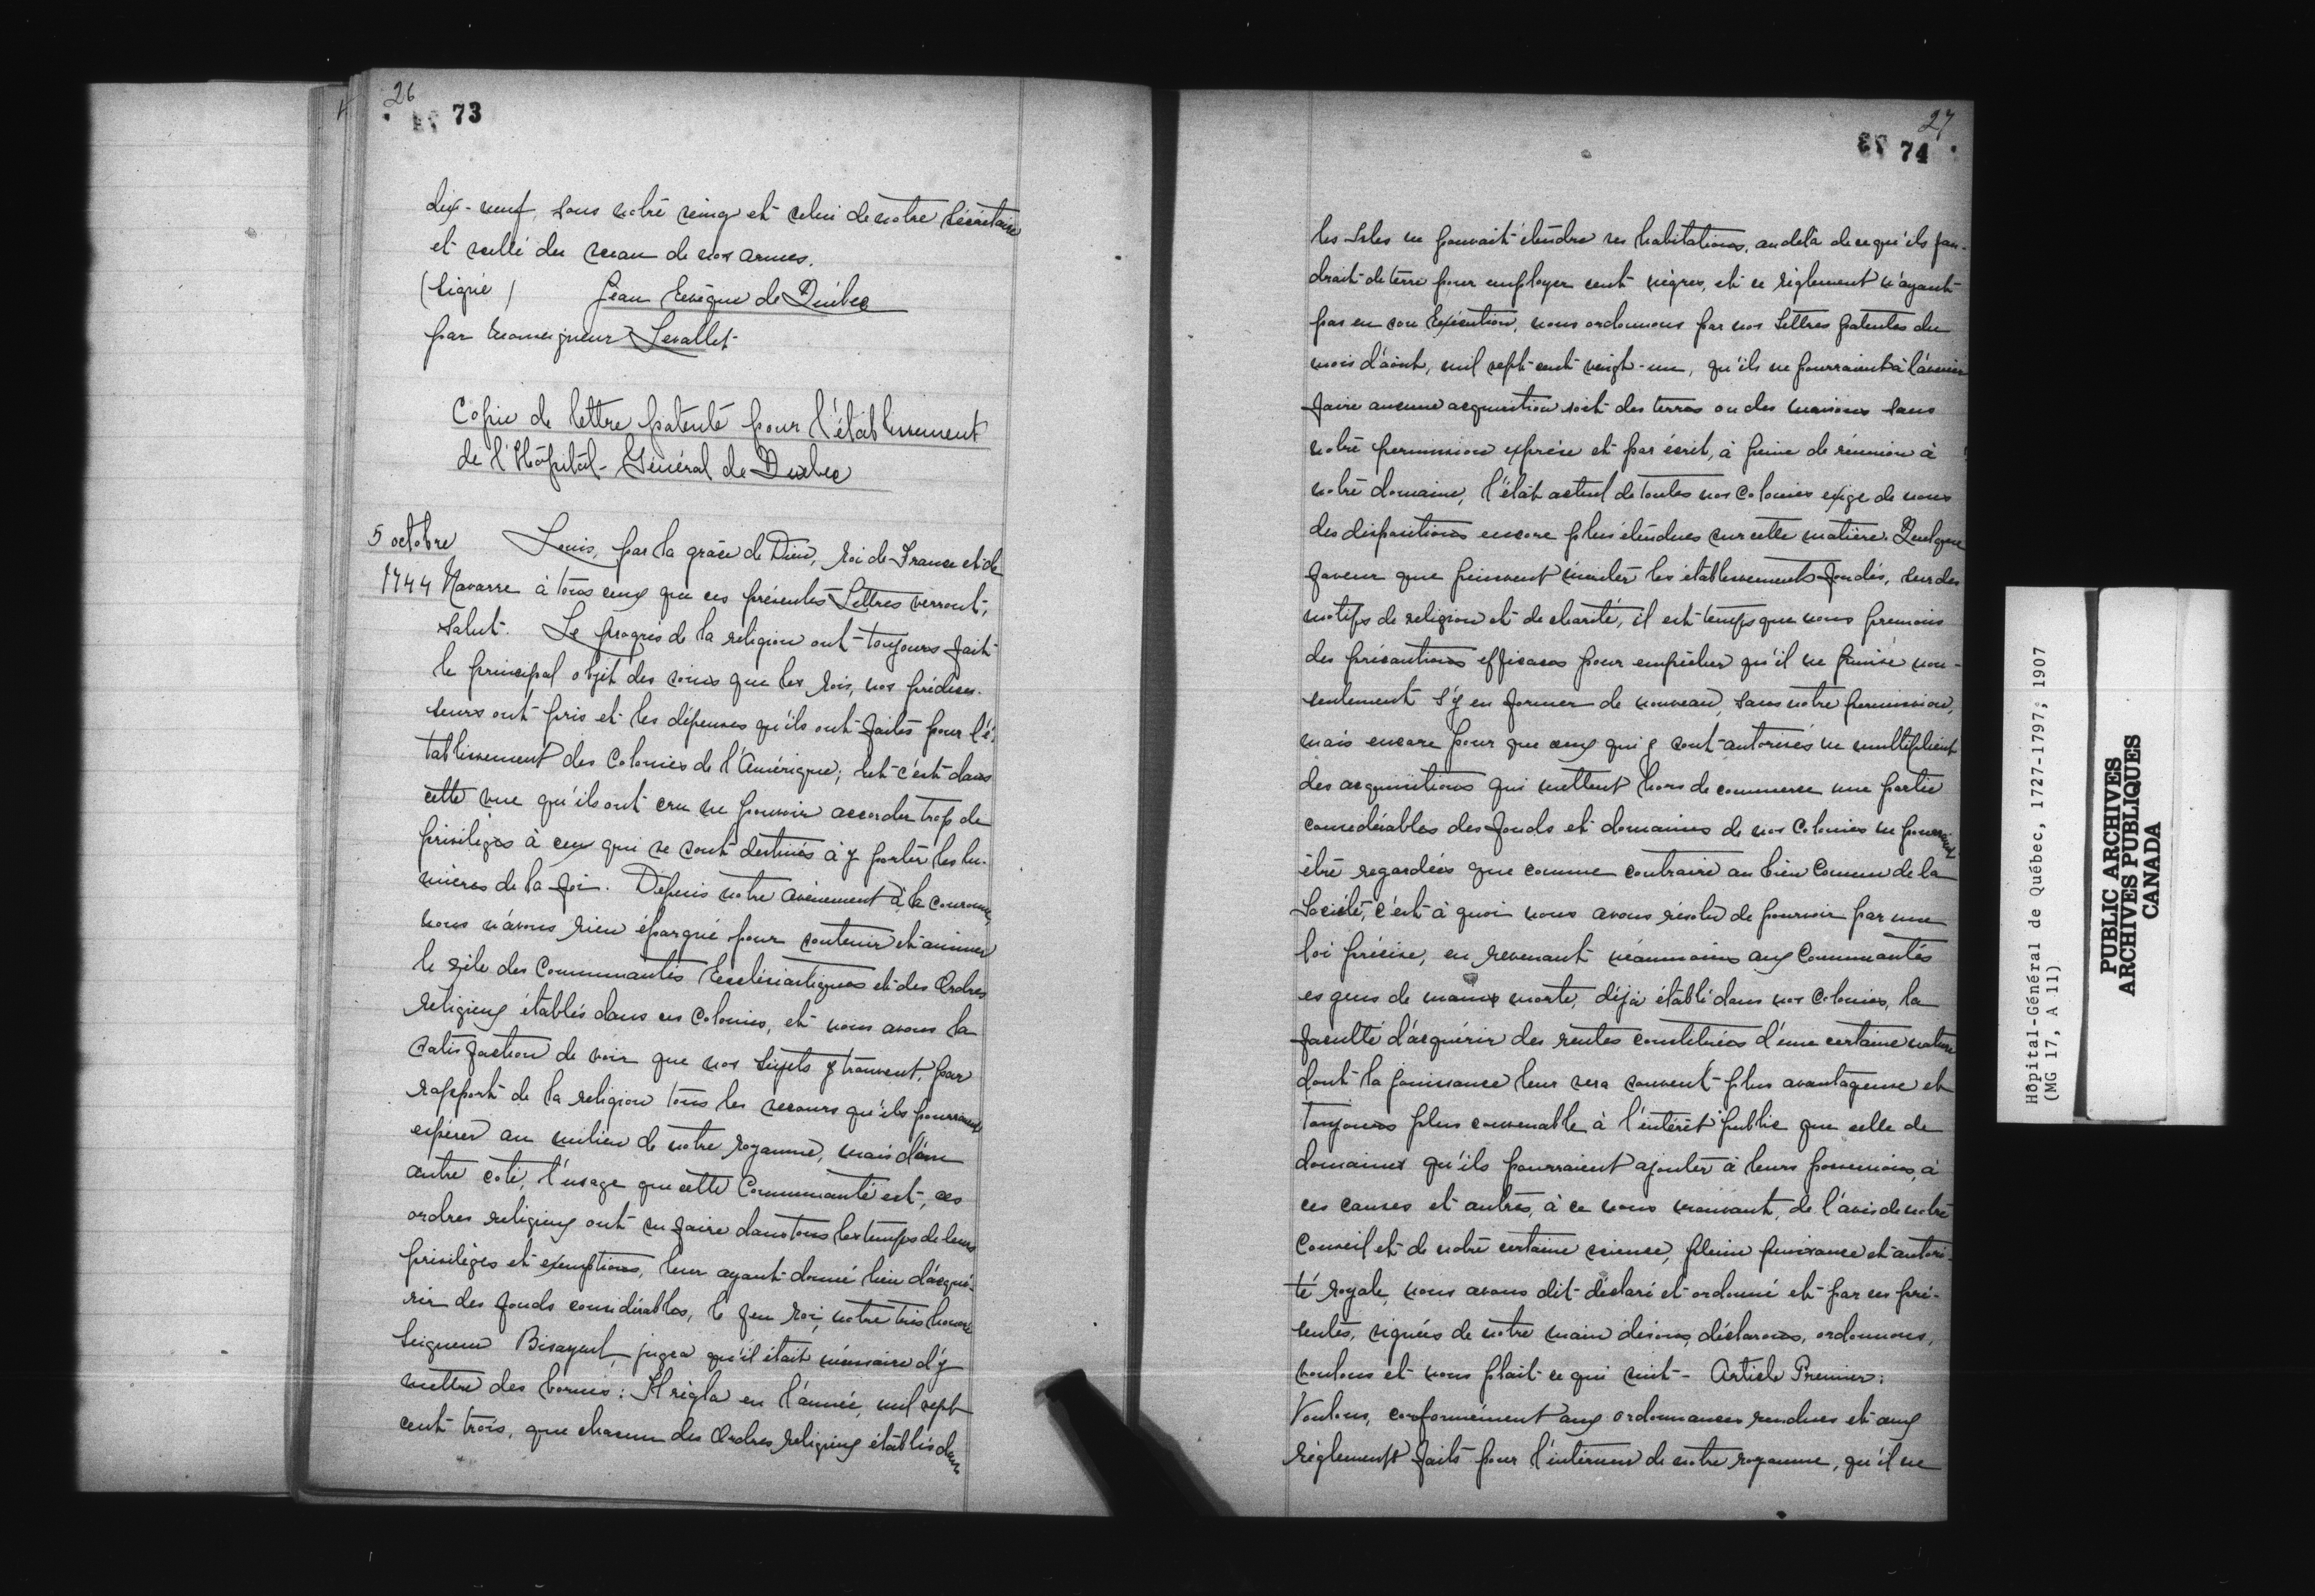 26
73
dix-neuf, sous notre seing et celui de notre Sécrétaire
et scellé du sceau de nos armes.
(signé) Jean Evêque de Québec
par Monseigneur Levallet
Copie de lettre patente pour l'établissement
de l'Hôpital-Général de Québec
5 octobre
1744
Louis, par la grâce de Dieu, roi de France et de
Navarre à tous ceux que ces présentes Lettres verront,
Salut. Le progrès de la religion ont toujours fait
le principal objet des soins que les rois, nos prédeces-
seurs ont pris et les dépenses qu'ils ont faites pour l'é-
tablissement des Colonies de l'Amérique; et c'est dans
cette vue qu'ils ont cru ne pouvoir accorder trop de
privilèges à ceux qui se sont destinés à y porter les lu-
mières de la foi. Depuis notre avènement à la couronne,
nous n'avons rien épargné pour soutenir et animer
le zèle des Communautés Ecclésiastiques et des Ordres
religieux établis dans ces Colonies, et nous avons la
satisfaction de voir que nos sujets y trouvent, par
rapport de la religion tous les secours qu'ils pourraient
espérer au milieu de notre royaume, mais d'un
autre coté, l'usage que cette Communauté et ces
ordres religieux ont su faire dans tous les temps de leurs
privilèges et exemptions, leur ayant donné lieu d'acqué-
rir des fonds considérables, le feu roi, notre très honoré
Seigneur Bisayeul, jugea qu'il était nécessaire d'y
mettre des bornes: Il règla en l'année, mil sept
cent trois, que chacun des Ordres religieux établis dans
27
74
les Isles ne pouvait étendre ses habitations, au delà de ce qu'ils fau-
drait de terre pour employer cent nègres, et ce règlement n'ayant
pas eu son Exécution, nous ordonnons par nos Lettres patentes du
mois d'août, mil sept cent vingt-un, qu'ils ne pourraient à l'avenir
faire aucune acquisition soit des terres ou des maisons sans
notre permission exprèse et par écrit, à peine de réunion à
notre domaine, l'état actuel de toutes nos Colonies exige de nous
des dispositions encore plus étendues sur cette matière. Quelque
faveur que puissent mériter les établissements fondés, sur des
motifs de religion et de charité, il est temps que nous prenions
des précautions efficaces pour empêcher qu'il ne puisse non-
seulement s'y en former de nouveau, sans notre permission,
mais encore pour que ceux qui y sont autorisés ne multiplient
des acquisitions qui mettent hors de commerce une partie
considérables des fonds et domaines de nos Colonies ne pourraient
être regardées que comme contraire au bien Commun de la
Société, c'est à quoi nous avons résolu de pourvoir par une
loi précise, en revenant néanmoins aux Communautés
es gens de mains morte, déjà établi dans nos Colonies, la
faculté d'acquérir des rentes constituées d'une certaine nature
dont la jouissance leur sera souvent plus avantageuse et
toujours plus convenable à l'intérêt public que celle de
domaines qu'ils pourraient ajouter à leurs possessions, à
ces causes et autres, à ce nous mouvant, de l'avis de notre
Conseil et de notre certaine science, pleine puissance et autori-
té royale, nous avons dit déclaré et ordonné et par ces pré-
sentes, signées de notre main disons, déclarons, ordonnons,
voulons et nous plait ce qui suit - Article Premier:
Voulons, conformément aux ordonnances rendues et aux
règlements faits pour l'intérieur de notre royaume, qu'il ne
Hôpital-Général de Québec, 1727-1797, 1907
(MG 17, A 11)
PUBLIC ARCHIVES
ARCHIVES PUBLIQUES
CANADA